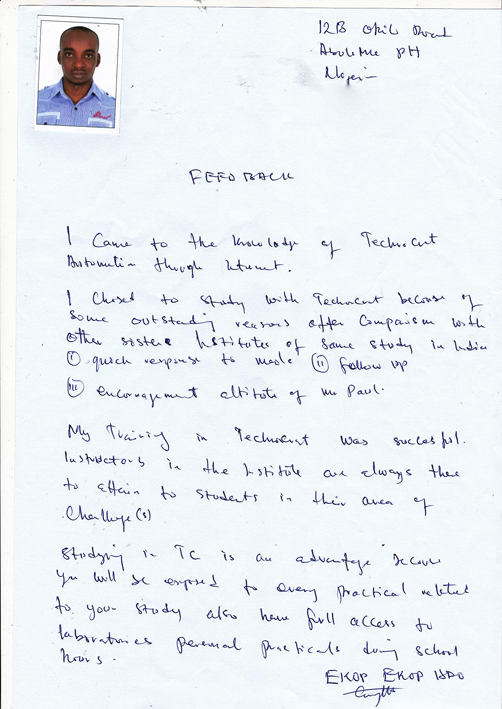 12B Okilo Road
Abuloma PH
Nigeria
FEEDBACK
I Came to the knowledge of Technocrat
Automation through Internet.
I Chosed to study with Technocrat because of
some outstanding reasons after Comparism with
other sisters Institutes of same study in India
(i) quick response to mails (ii) follow up
(iii) encouragement altitute of mr Paul.
My Training in Technocrat was succesful.
Instructors in the Institute are always there
to attain to students in their area of
Challenge(s)
Studying in TC is an advantage because
you will be exposed to every practical related
to your study also have full access to
laboratories personal practicals during school
hours.
EKOP EKOP